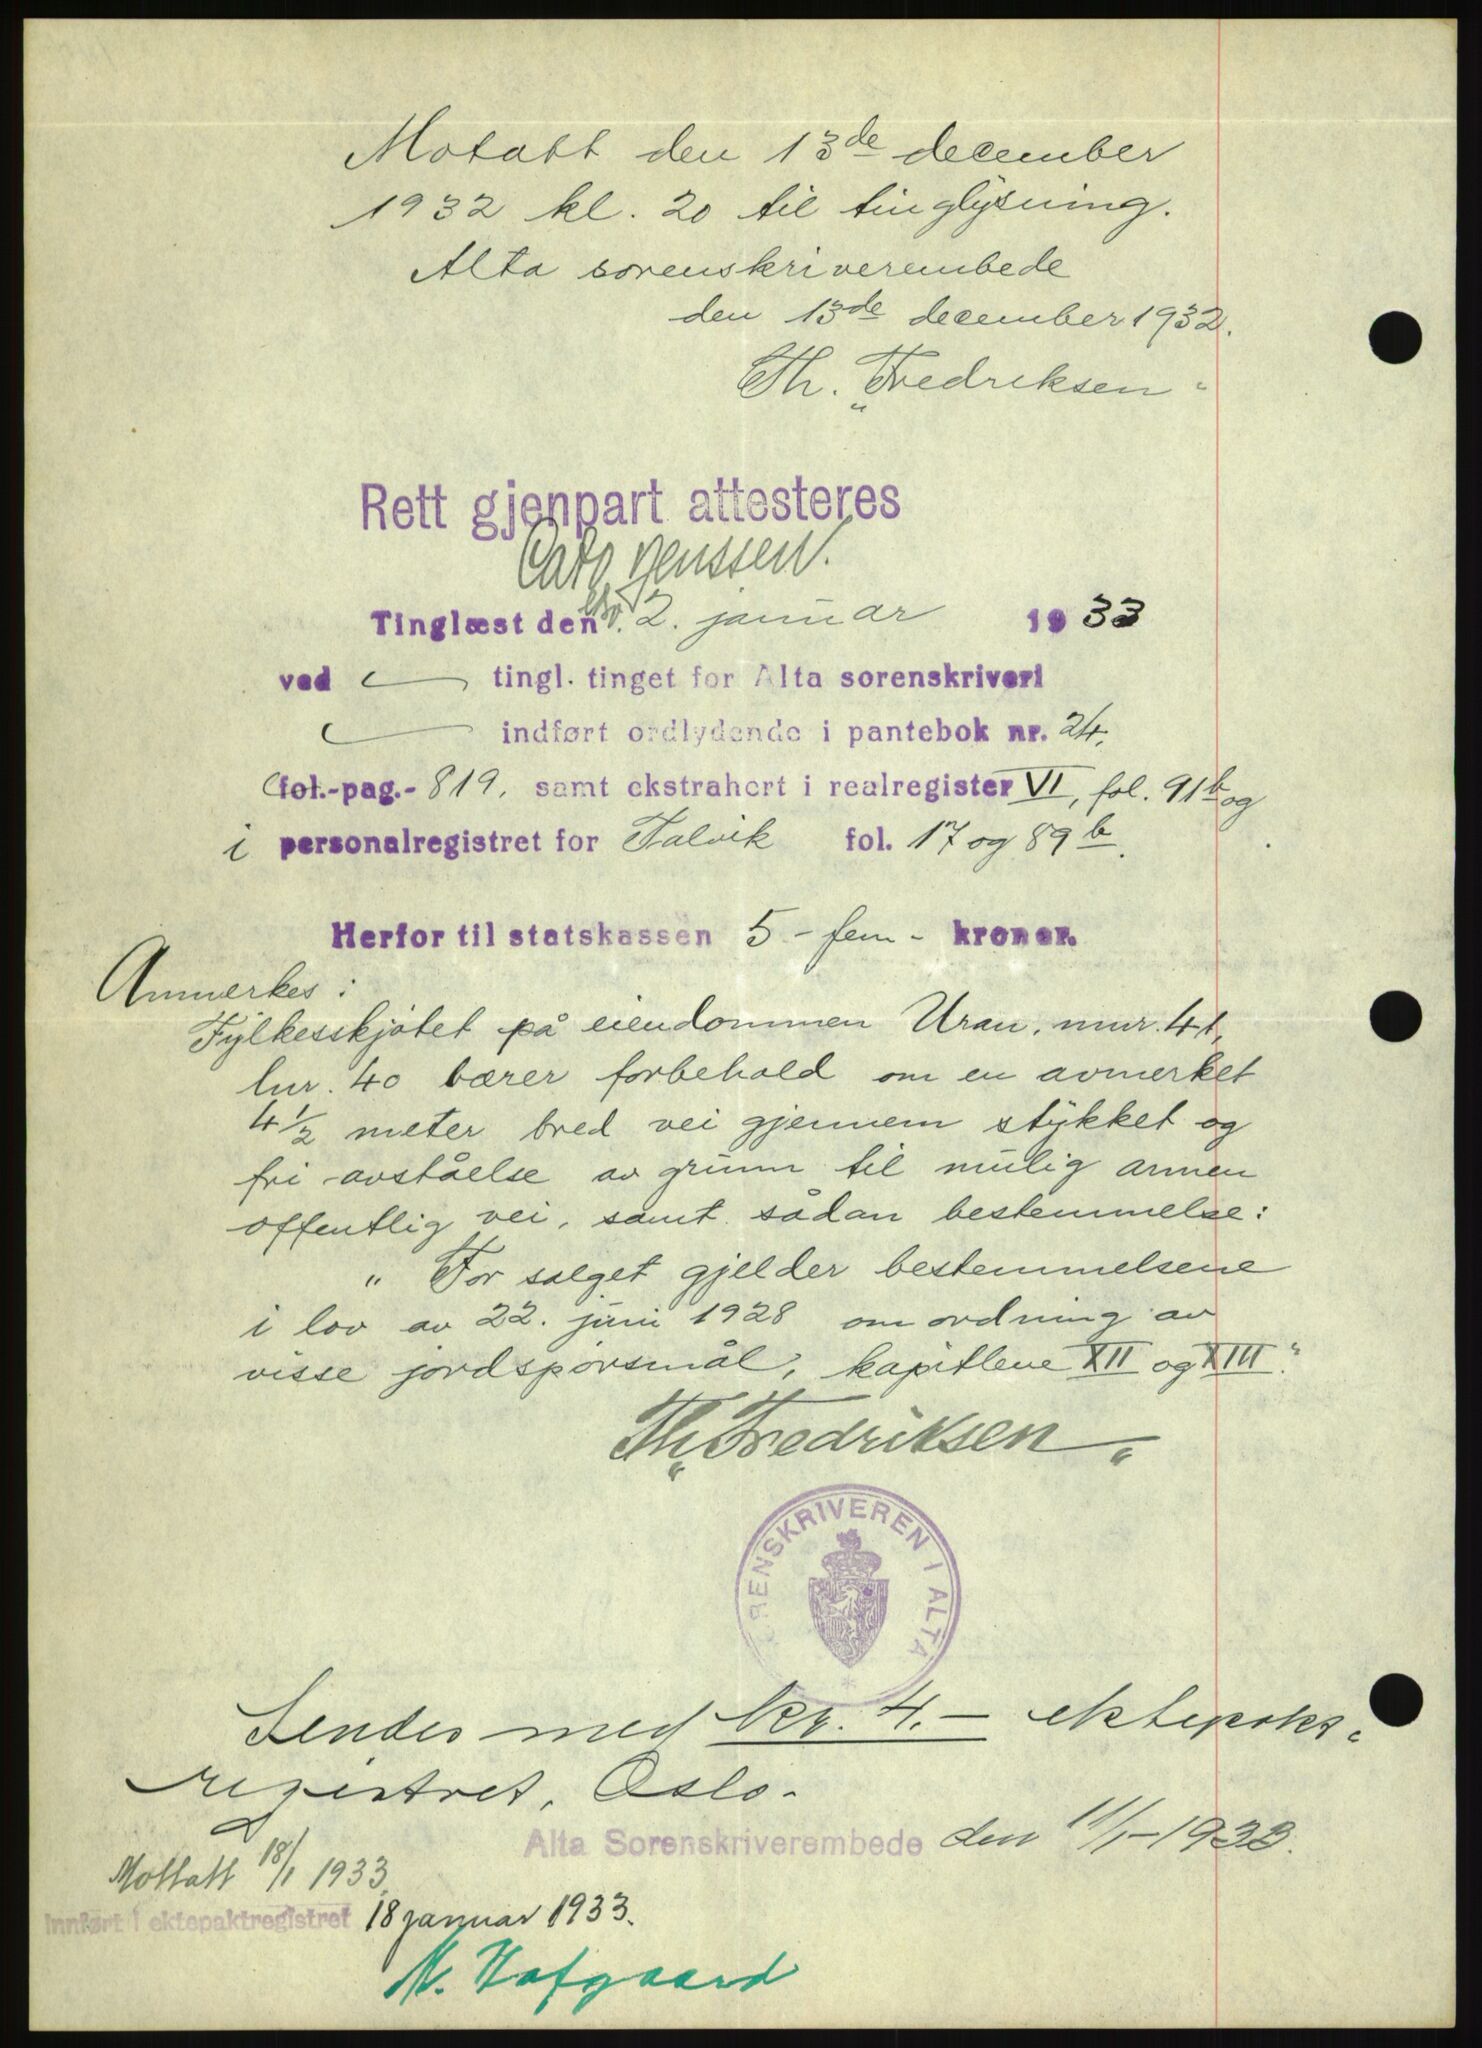 Motatt den 13de december
1932 kl. 20 til tinglysning.
Alta sorenskriverembede
den 13de december 1932.
Th. Fredriksen
Rett gjenpart attesteres
Cato Jenssen.
Tinglæst den 2. januar 1933
ved — tingl. tinget for Alta sorenskriveri
— indført ordlydende i pantebok nr. 24,
fol.-pag.- 819, samt ekstrahert i realregister VI, fol. 91b og
i personalregistret for Talvik fol. 17 og 89b.
Herfor til statskassen 5 - fem - kroner.
Anmerkes:
Fylkesskjøtet på eiendommen Uran, mnr. 41,
lnr. 40 bærer forbehold om en avmerket
4 1/2 meter bred vei gjennem stykket og
fri avståelse av grunn til mulig annen
offentlig vei, samt sådan bestemmelse:
"For salget gjelder bestemmelsene
i lov av 22. juni 1928 om ordning av
visse jordspørsmål, kapitlene XII og XIII."
Th. Fredriksen
SORENSKRIVEREN I ALTA
Sendes med kr. 4.— ektepakts-
registret, Oslo.
Alta Sorenskriverembede den 11/1-1933.
Mottatt 18/1 1933.
Innført i ektepaktregistret 18 januar 1933.
M. Hofgaard